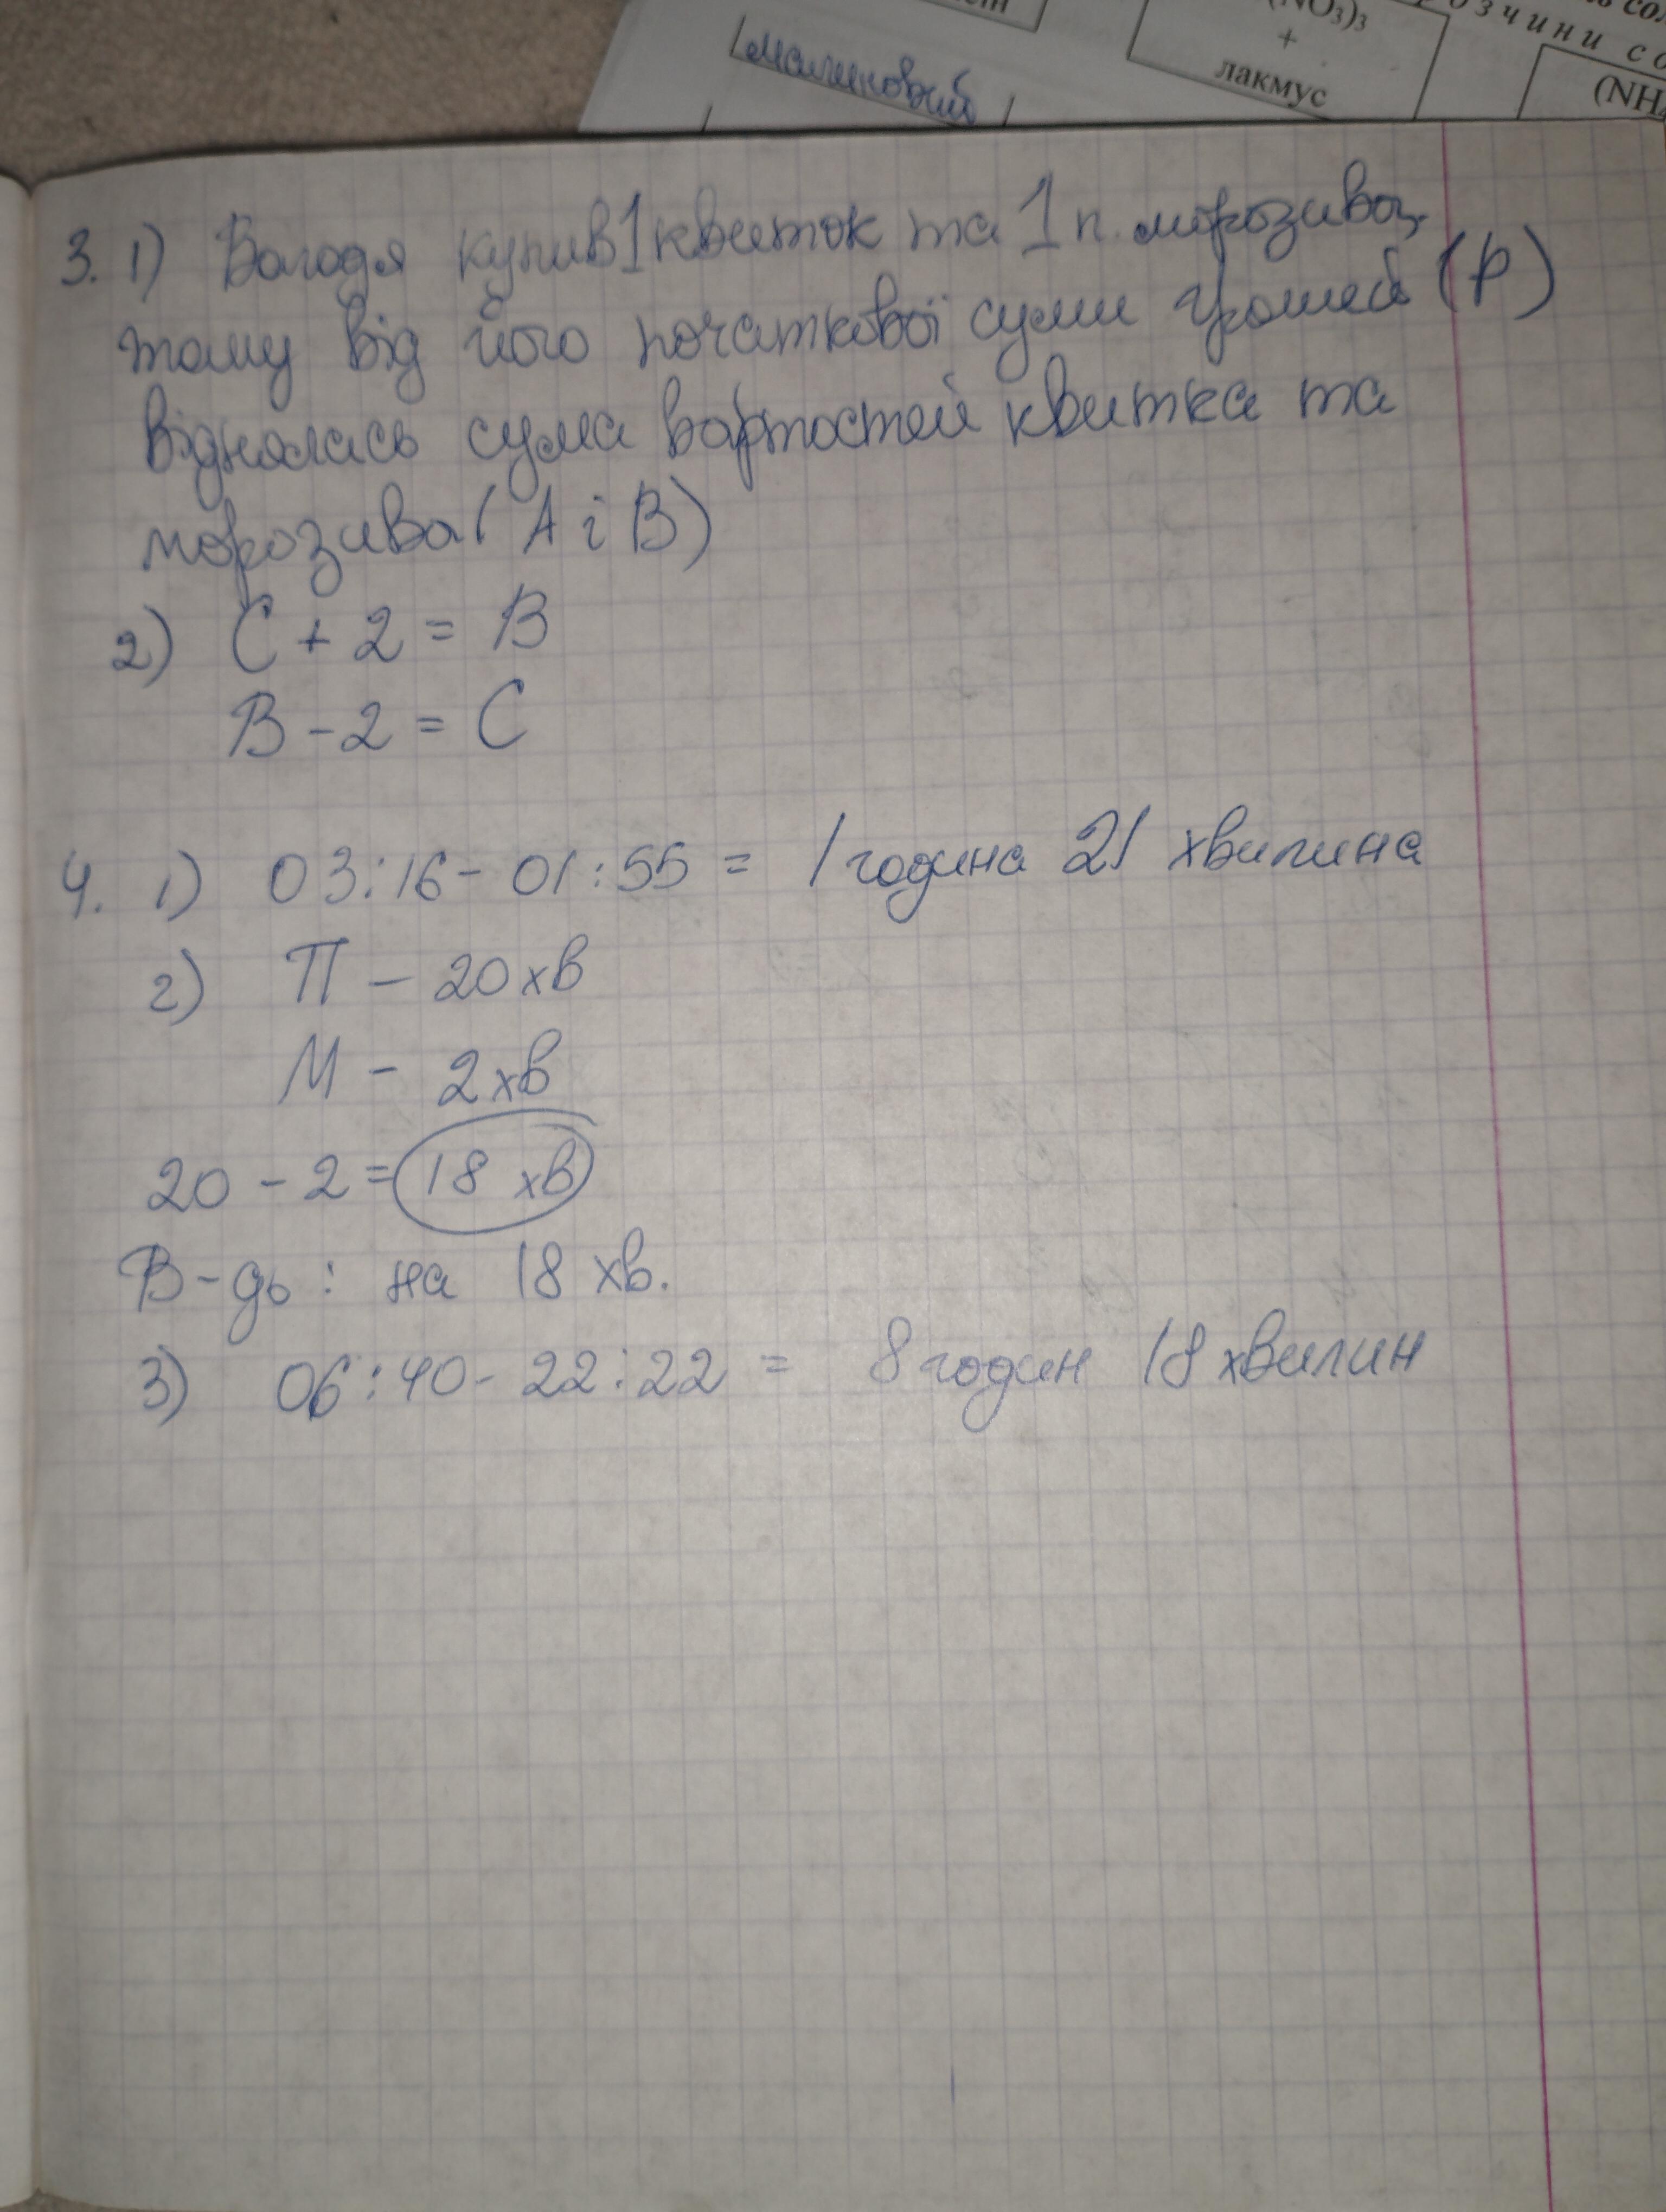 малиновий
(NO₃)₃
+
лакмус
(NH
3. 1) Володя купив 1 квиток та 1 п. морозива,
тому від його початкової суми грошей (р)
віднялась сума вартостей квитка та
морозива (А і В)
2) С + 2 = В
В - 2 = С
4. 1) 03:16 - 01:55 = 1 година 21 хвилина
2) П - 20 хв
М - 2 хв
20 - 2 = 18 хв
В-дь: на 18 хв.
3) 06:40 - 22:22 = 8 годин 18 хвилин